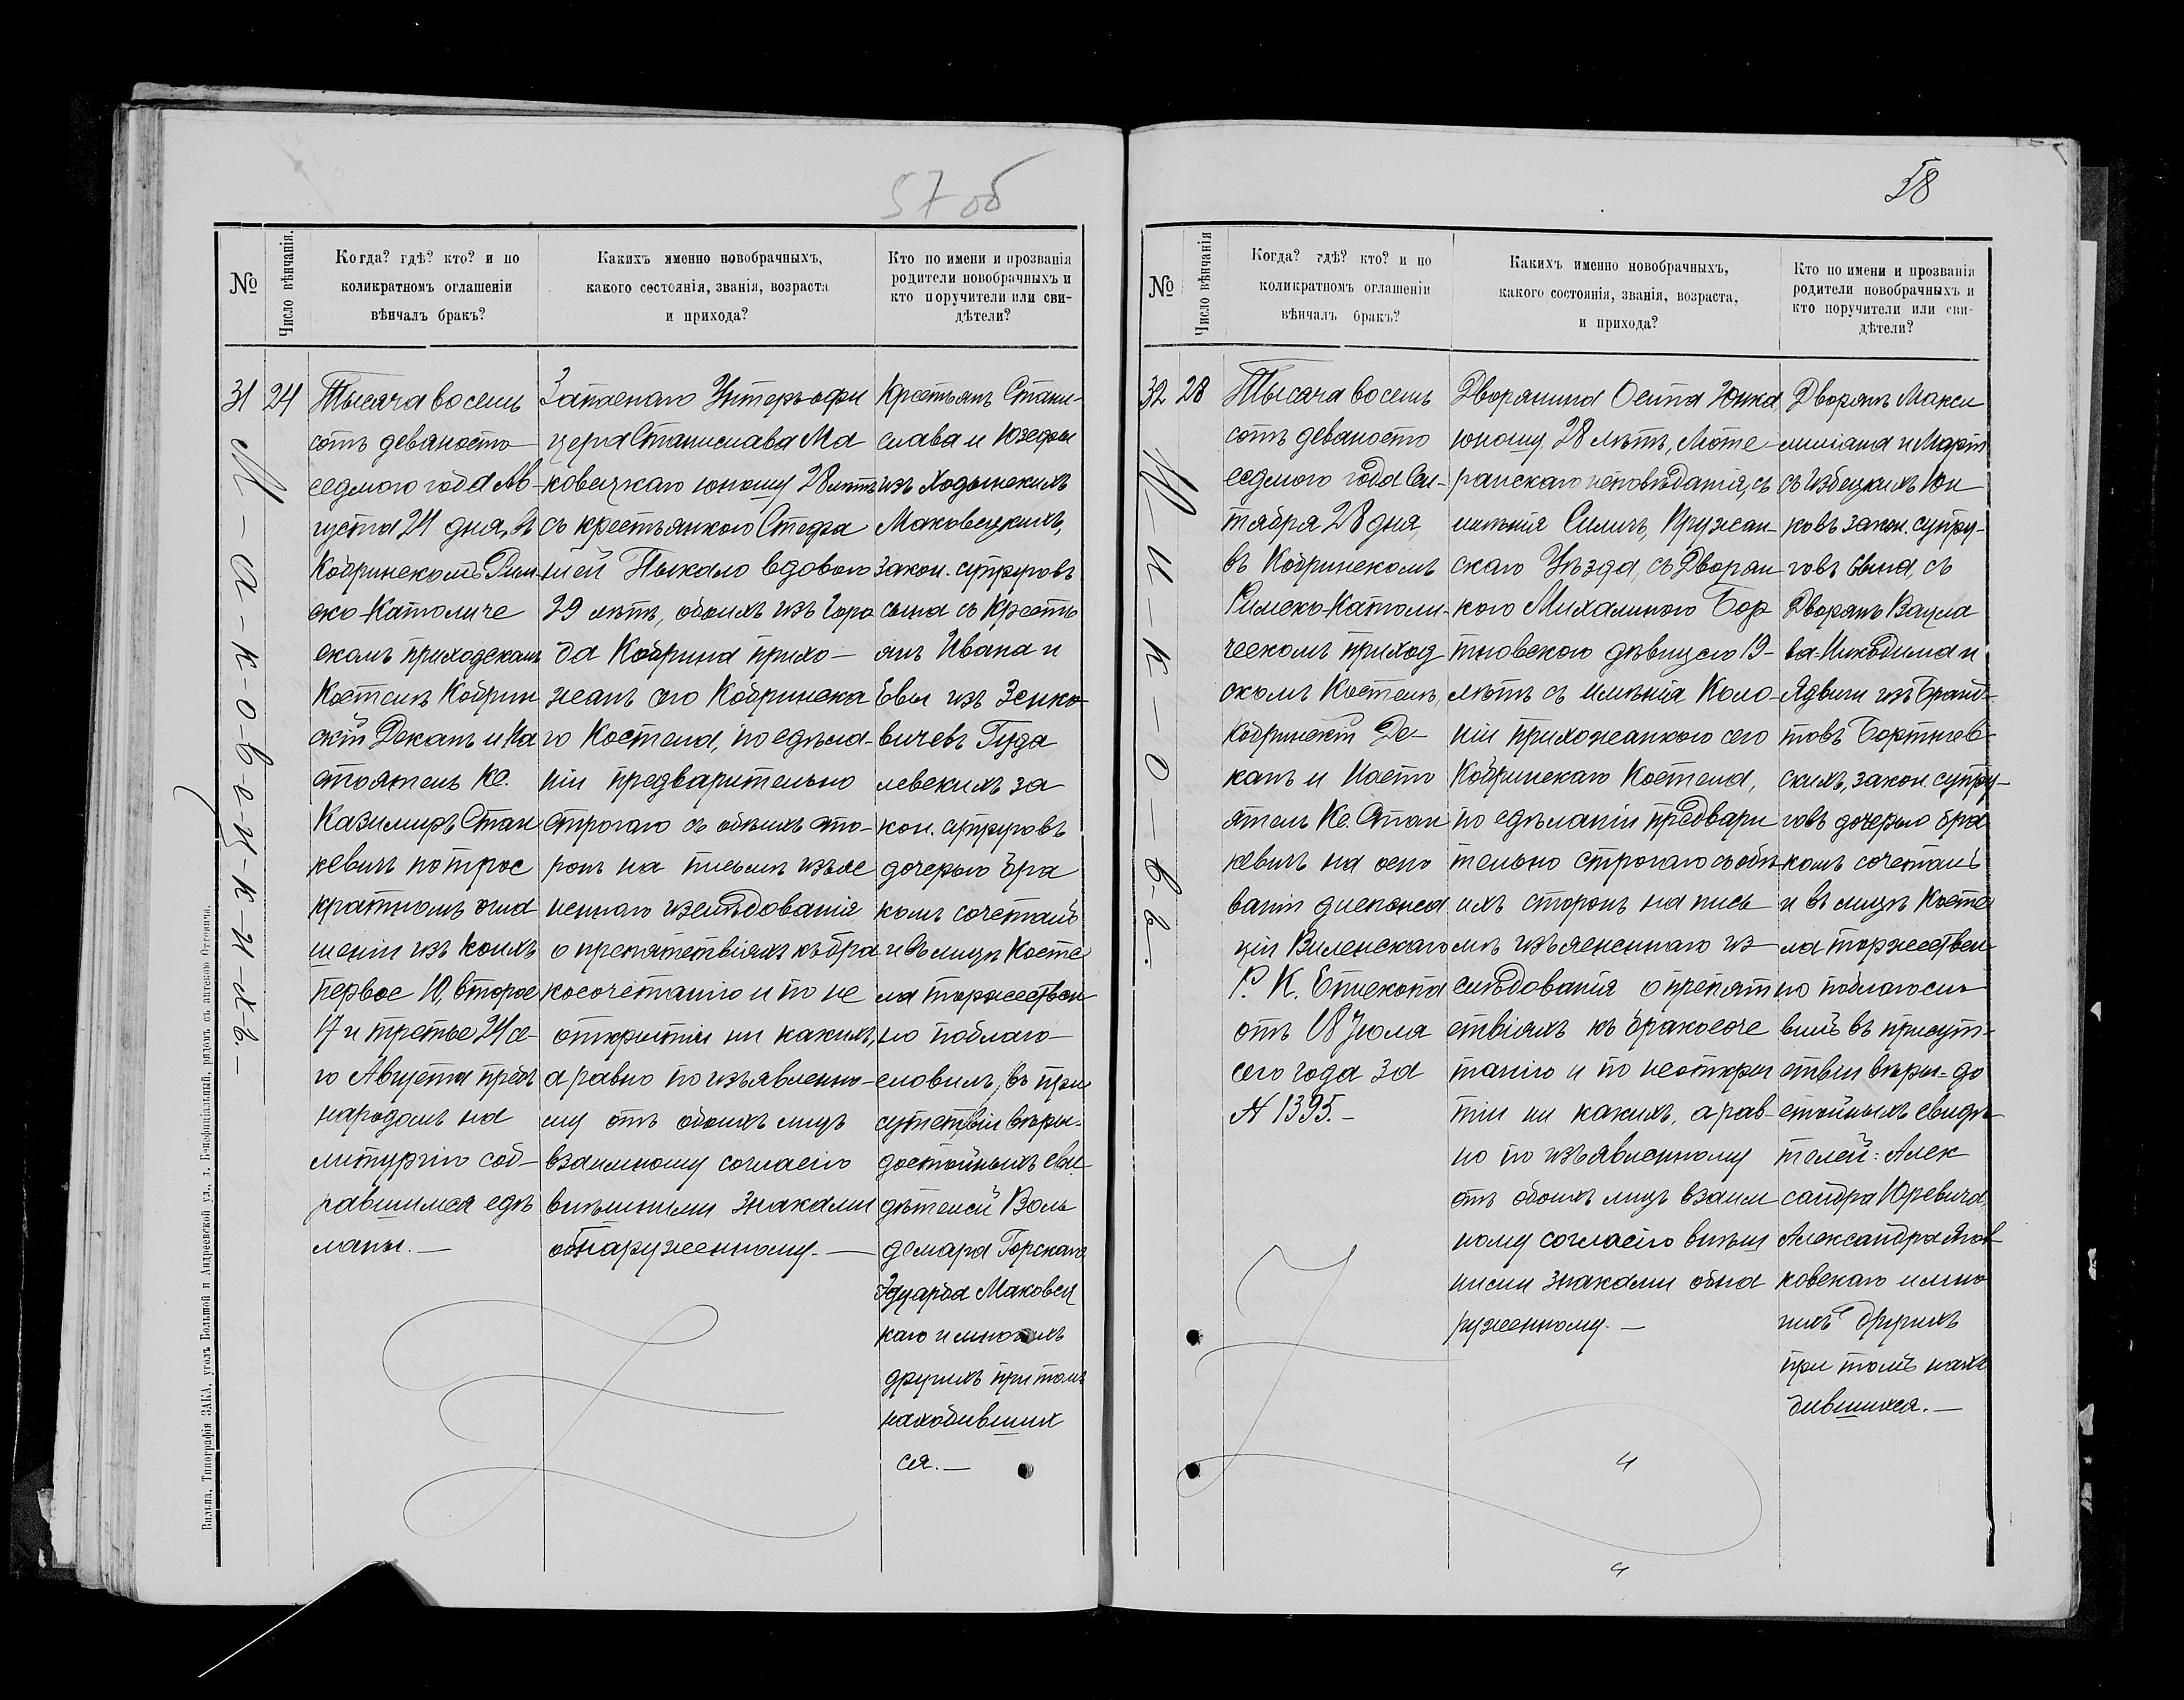 57 об
№
Число вѣнчанія.
Когда? гдѣ? кто? и по
коликратномъ оглашеніи
вѣнчалъ бракъ?
Какихъ именно новобрачныхъ,
какого состоянія, званія, возраста
и прихода?
Кто по имени и прозванія
родители новобрачныхъ и
кто поручители или сви-
дѣтели?
31
24
М-а-к-о-в-е-ц-к-и-х-ъ-
Тысяча восемь
сотъ девяносто
седмого года Ав-
густа 24 дня, въ
Кобринскомъ Рим-
ско-Католиче
скомъ приходскомъ
Костелѣ Кобрин
скій Деканъ и На
стоятель Кс.
Казимиръ Стан
кевичъ по трое
кратномъ огла
шеніи изъ коихъ
первое 10, второе
17 и третье 24 се-
го Августа предъ
народомъ на
литургію соб-
равшимся сдѣ
ланы.-
Запаснаго Унтеръ-офи
цера Станислава Ма
ковецкаго юношу 28 лѣтъ
съ крестьянкою Стефа
ніей Пыкало вдовою
29 лѣтъ, обоихъ изъ горо
да Кобрина прихо-
жанъ сего Кобринска
го Костела, по сдѣла-
ніи предварительно
строгаго съ обѣихъ сто-
ронъ на письмѣ изъяс
неннаго изслѣдованія
о препятствіяхъ къ бра
косочетанію и по не
открытіи ни какихъ,
а равно по изъявленно-
му отъ обоихъ лицъ
взаимному согласію
внѣшними знаками
обнаруженному.-
Крестьянъ Стани-
слава и Юзефы
изъ Ходынскихъ
Маковецкихъ,
закон. супруговъ
сына съ Крестъ
янъ Ивана и
Евы изъ Зенко-
вичевъ Гуда
левскихъ за
кон. супруговъ
дочерью бра
комъ сочеталъ
и въ лицѣ Косте
ла торжествен
но поблаго-
словилъ, въ при
сутствіи вѣры-
достойныхъ сви-
дѣтелей Воль
демара Горскаго,
Эдуарда Маковец
каго и многихъ
другихъ при томъ
находившихъ
ся.-
Вильна, Типографія ЗАКА, уголъ Большой и Андреевской ул., д. Бенефиціальный, рядомъ съ аптекою Оттовича.
58
№
Число вѣнчанія
Когда? гдѣ? кто? и по
коликратномъ оглашеніи
вѣнчалъ бракъ?
Какихъ именно новобрачныхъ,
какого состоянія, званія, возраста,
и прихода?
Кто по имени и прозванія
родители новобрачныхъ и
кто поручители или сви-
дѣтели?
32
28
Ю-н-к-о-в-ъ.
Тысяча восемь
сотъ девяносто
седмого года Сен-
тября 28 дня,
въ Кобринскомъ
Римско-Католи-
ческомъ приход
скомъ Костелѣ,
Кобринскій Де-
канъ и Насто
ятель Кс. Стан
кевичъ на осно
ваніи диспенса
ціи Виленскаго
Р. К. Епископа
отъ 18 Іюля
сего года за
№ 1395.-
Дворянина Осипа Юнка
юношу, 28 лѣтъ, Люте-
ранскаго исповѣданія, съ
имѣнія Силичъ, Пружан-
скаго Уѣзда, съ Дворян
кою Михалиною Бор
тновскою дѣвицею 19-
лѣтъ съ имѣнія Коло-
ніи прихожанкою сего
Кобринскаго Костела,
по сдѣланіи предвари
тельно строгаго съ обѣ
ихъ сторонъ на пись
мѣ изъясненнаго из-
слѣдованія о препят
ствіяхъ къ бракосоче
танію и по неоткры
тіи ни какихъ, а рав-
но по изъявленному
отъ обоихъ лицъ взаим
ному согласію внѣш
ними знаками обна
руженному.-
Дворянъ Макси
миліана и Март
съ Избецкихъ Юн
ковъ закон. супру-
говъ сына, съ
Дворянъ Вацла
ва-Никодима и
Ядвиги изъ Бранд-
товъ Бортнов-
скихъ, закон. супру-
говъ дочерью бра
комъ сочеталъ
и въ лицѣ Косте
ла торжествен-
но поблагосло
вилъ въ присут-
ствіи вѣры-до
стойныхъ свидѣ-
телей: Алек
сандра Юревича,
Александра Янов
ковскаго и мно
гихъ другихъ
при томъ нахо
дившихся.-